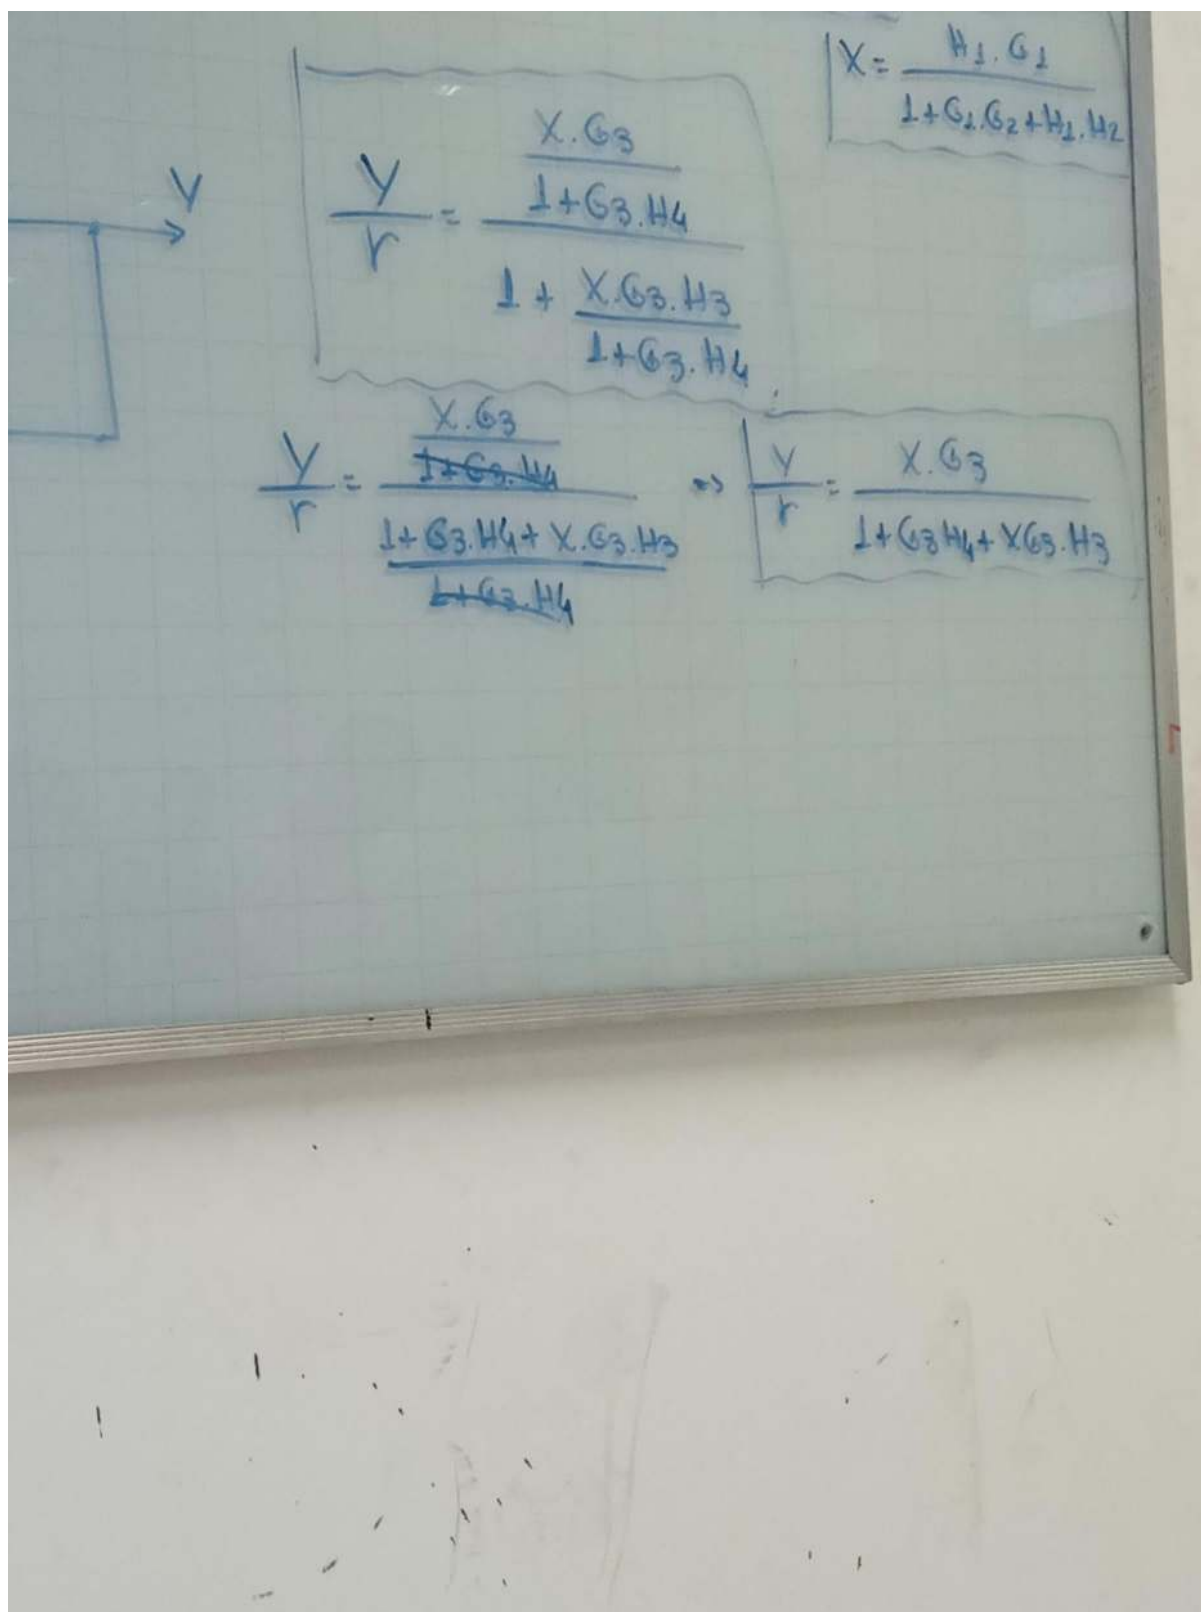 X = H1.G1 / 1+G1.G2+H1.H2
Y
Y/r = (X.G3 / 1+G3.H4) / (1 + X.G3.H3 / 1+G3.H4)
Y/r = (X.G3 / 1+G3.H4) / (1+G3.H4+X.G3.H3 / 1+G3.H4) => Y/r = X.G3 / 1+G3H4+XG3.H3